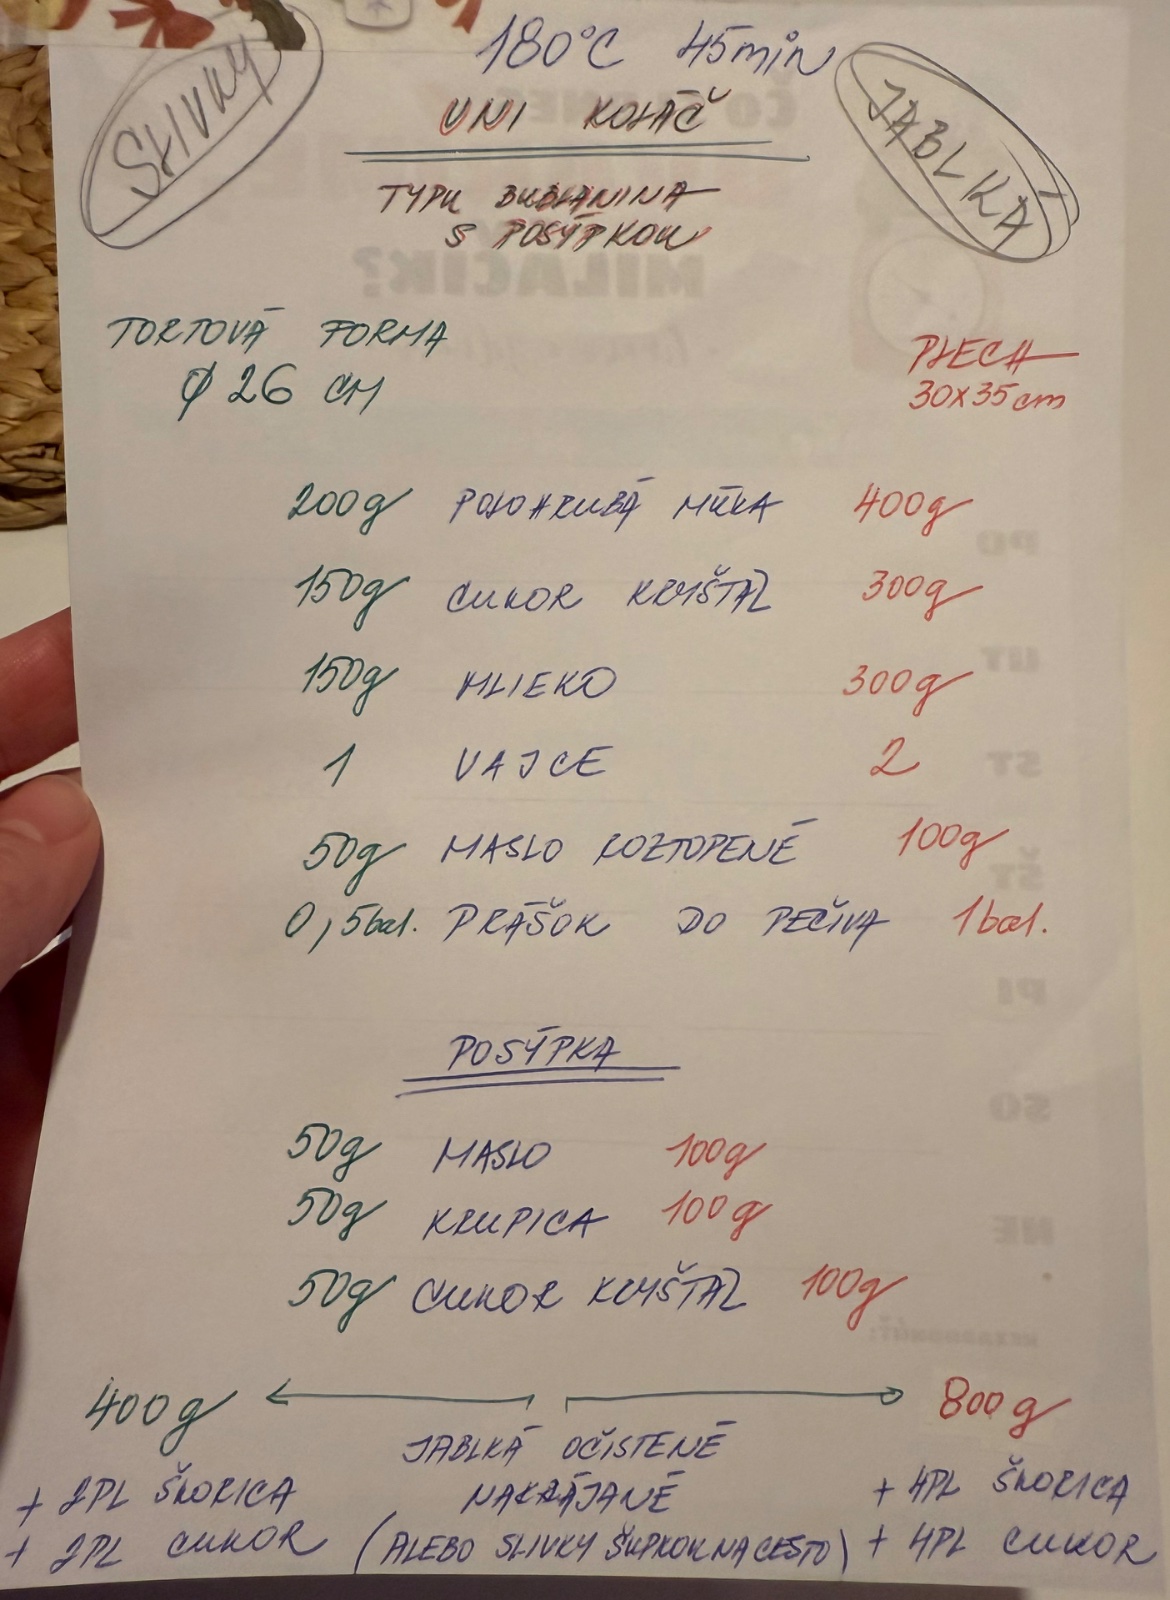 180°C 45min
SLIVKY
JABLKÁ
UNI KOLÁČ
TYPU BUBLANINA
S POSÝPKOU
TORTOVÁ FORMA
Ø 26 CM
PLECH
30x35cm
200g POLOHRUBÁ MÚKA 400g
150g CUKOR KRYŠTÁL 300g
150g MLIEKO 300g
1 VAJCE 2
50g MASLO ROZTOPENÉ 100g
0,5bal. PRÁŠOK DO PEČIVA 1bal.
POSÝPKA
50g MASLO 100g
50g KRUPICA 100g
50g CUKOR KRYŠTÁL 100g
400g 800g
JABLKÁ OČISTENÉ
+ 2PL ŠKORICA NAKRÁJANÉ + 4PL ŠKORICA
+ 2PL CUKOR (ALEBO SLIVKY ŠUPKOU NA CESTO) + 4PL CUKOR
MILÁČIK?
PO
UT
ST
ŠT
PI
SO
NE